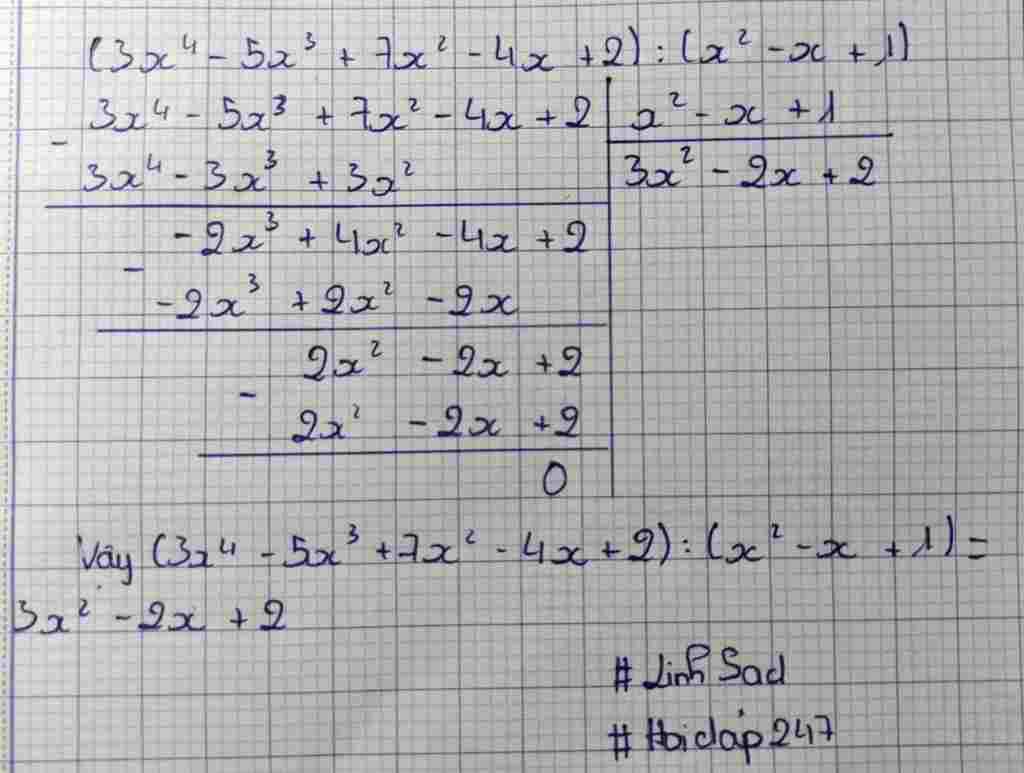 (3x⁴ - 5x³ + 7x² - 4x + 2) : (x² - x + 1)
3x⁴ - 5x³ + 7x² - 4x + 2 | x² - x + 1
-
3x⁴ - 3x³ + 3x² | 3x² - 2x + 2
-2x³ + 4x² - 4x + 2
-
-2x³ + 2x² - 2x
2x² - 2x + 2
-
2x² - 2x + 2
0
Vậy (3x⁴ - 5x³ + 7x² - 4x + 2) : (x² - x + 1) =
3x² - 2x + 2
# Linh Sad
# Hoidáp247